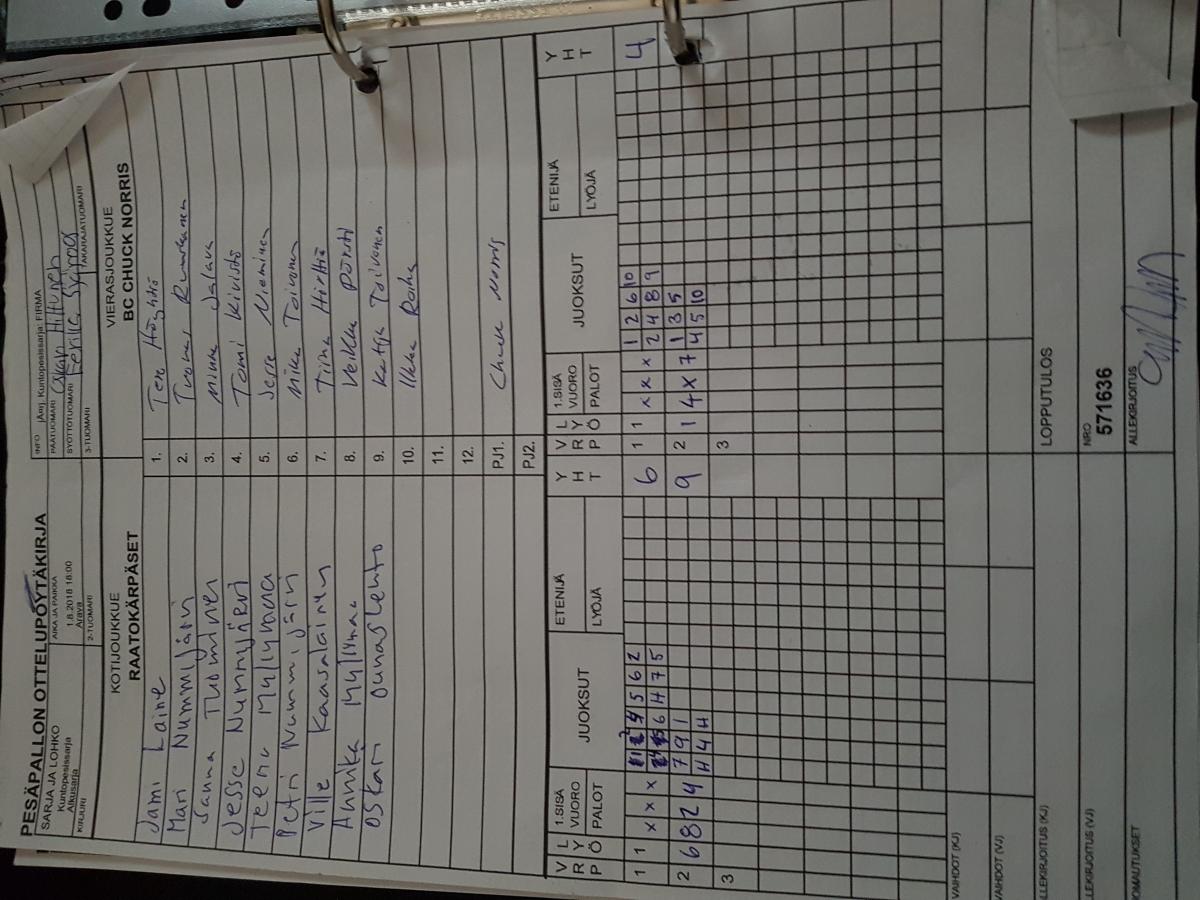 PESÄPALLON OTTELUPÖYTÄKIRJA
SARJA JA LOHKO
Kuntopesissarja
Alkusarja
KIRJURI
AIKA JA PAIKKA
1.8.2018 18:00
Arava
2-TUOMARI
INFO (Amj. Kuntopesissarja: FIRMA
PÄÄTUOMARI Hiltunen
SYÖTTÖTUOMARI Eerika
3-TUOMARI
TAKARAJATUOMARI
KOTIJOUKKUE
RAATOKÄRPÄSET
VIERASJOUKKUE
BC CHUCK NORRIS
Jami Laine 1. Tero Höyhtiö
Mari Nummijärvi 2. Tuomas
Sanna Tuominen 3. Minna Jalava
Jesse Nummijärvi 4. Tomi Kivistö
Teemu Myllymaa 5. Jesse Nieminen
Petri Nummijärvi 6. Mika Toivonen
Ville Kaasalainen 7. Tiina Hirttiö
Annika Myllymaa 8. Veikka Pörsti
Oskari Ounaslehto 9. Katja Toivonen
10. Ilkka Roiha
11.
12.
PJ1. Chuck Norris
PJ2.
V R P L Y Ö 1.SISÄ VUORO PALOT JUOKSUT ETENIJÄ LYÖJÄ Y H T V R P L Y Ö 1.SISÄ VUORO PALOT JUOKSUT ETENIJÄ LYÖJÄ Y H T
1 1 x x x 5 6 2 6 1 1 x x x 1 2 6 10 4
6 H 7 5 2 4 8 9
2 6 8 2 4 7 9 1 9 2 1 4 x 7 1 3 5
H 4 H 4 5 10
3 3
VAIHDOT (KJ)
VAIHDOT (VJ)
ALLEKIRJOITUS (KJ) LOPPUTULOS
LEKIRJOITUS (VJ) NRO
571636
OMAUTUKSET ALLEKIRJOITUS